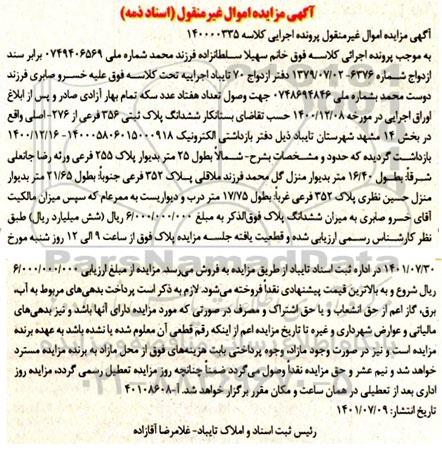 آگهی مزایده اموال غیرمنقول (اسناد ذمه)
آگهی مزایده اموال غیرمنقول پرونده اجرایی کلاسه ۱۴۰۰۰۰۳۳۵
به موجب پرونده اجرائی کلاسه فوق خانم سهیلا سلطانزاده فرزند محمد شماره ملی ۰۷۴۹۴۰۶۵۶۹ برابر سند
ازدواج شماره ۶۳۷۶- ۱۳۷۹/۰۷/۰۲ دفتر ازدواج ۷۰ تایباد اجراییه تحت کلاسه فوق علیه خسرو صابری فرزند
دوست محمد بشماره ملی ۰۷۴۸۶۹۴۸۴۶ جهت وصول تعداد هفتاد عدد سکه تمام بهار آزادی صادر و پس از ابلاغ
اوراق اجرایی در مورخه ۱۴۰۰/۱۲/۰۸ حسب تقاضای بستانکار ششدانگ پلاک ثبتی ۳۵۶ فرعی از ۲۷۶- اصلی واقع
در بخش ۱۴ مشهد شهرستان تایباد ذیل دفتر بازداشتی الکترونیک ۱۴۰۰۰۵۸۰۶۰۱۵۰۰۰۹۱۸- ۱۴۰۰/۱۲/۱۶
بازداشت گردیده که حدود و مشخصات بشرح- شمالاً بطول ۲۵ متر بدیوار پلاک ۲۵۵ فرعی ورثه رضا جانعلی
شرقاً: بطول ۱۶/۴۰ متر بدیوار منزل گل محمد فرزند ملاقلی پلاک ۳۵۲ فرعی جنوباً: بطول ۲۱/۶۵ متر بدیوار
منزل حسین نظری پلاک ۳۵۲ فرعی غرباً: بطول ۱۷/۷۵ متر درب و دیواریست به ممرعام که سپس میزان مالکیت
آقای خسرو صابری به میزان ششدانگ پلاک فوق‌الذکر به مبلغ ۶/۰۰۰/۰۰۰/۰۰۰ ریال (شش میلیارد ریال) طبق
نظر کارشناس رسمی ارزیابی شده و قطعیت یافته جلسه مزایده پلاک فوق از ساعت ۹ الی ۱۲ روز شنبه مورخ
۱۴۰۱/۰۷/۳۰ در اداره ثبت اسناد تایباد از طریق مزایده به فروش می‌رسد. مزایده از مبلغ ارزیابی ۶/۰۰۰/۰۰۰/۰۰۰
ریال شروع و به بالاترین قیمت پیشنهادی نقداً فروخته می‌شود. لازم به ذکر است پرداخت بدهی‌های مربوط به آب،
برق، گاز اعم از حق انشعاب و یا حق اشتراک و مصرف در صورتی که مورد مزایده دارای آنها باشد و نیز بدهی‌های
مالیاتی و عوارض شهرداری و غیره تا تاریخ مزایده اعم از اینکه رقم قطعی آن معلوم شده یا نشده باشد به عهده برنده
مزایده است و نیز در صورت وجود مازاد، وجوه پرداختی بابت هزینه‌های فوق از محل مازاد به برنده مزایده مسترد
خواهد شد و نیم عشر و حق مزایده نقداً وصول می‌گردد ضمناً چنانچه روز مزایده تعطیل رسمی گردد، مزایده روز
اداری بعد از تعطیلی در همان ساعت و مکان مقرر برگزار خواهد شد. آ-۴۰۱۰۸۶۰۸
تاریخ انتشار: ۱۴۰۱/۰۷/۰۹
رئیس ثبت اسناد و املاک تایباد- غلامرضا آقازاده